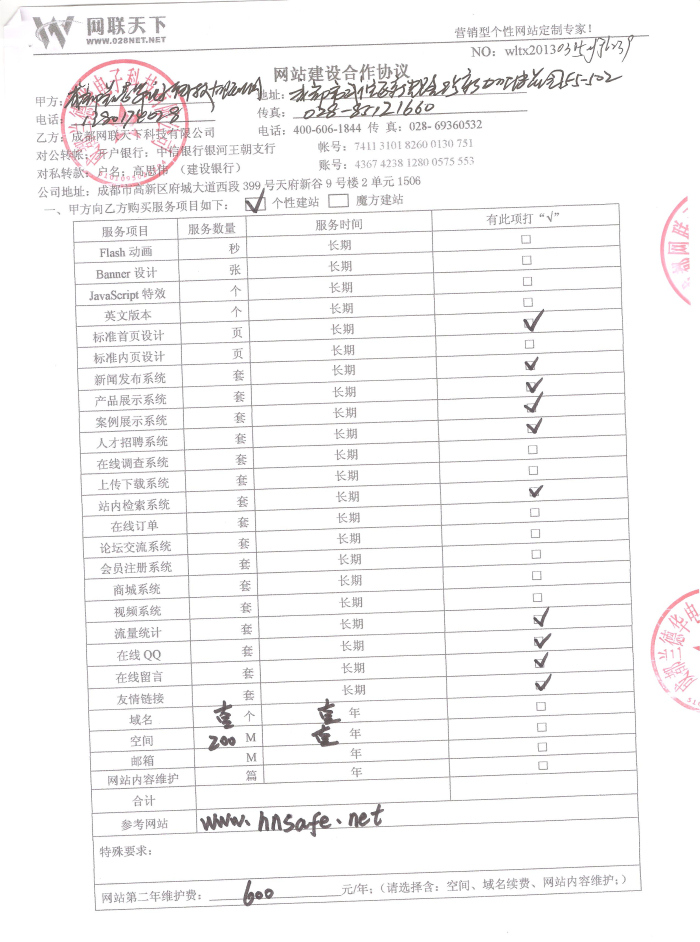 网联天下
WWW.028NET.NET
营销型个性网站定制专家！
NO: wltx2013
网站建设合作协议
甲方： 地址：
电话： 传真：028-85121660
乙方：成都网联天下科技有限公司 电话：400-606-1844 传 真：028- 69360532
对公转帐：开户银行：中信银行银河王朝支行 帐号：7411 3101 8260 0130 751
对私转款：户名：高思伟 （建设银行） 账号：4367 4238 1280 0575 553
公司地址：成都市高新区府城大道西段 399 号天府新谷 9 号楼 2 单元 1506
一、甲方向乙方购买服务项目如下： ✓ 个性建站 □ 魔方建站
服务项目 服务数量 服务时间 有此项打“√”
Flash 动画 秒 长期 □
Banner 设计 张 长期 □
JavaScript 特效 个 长期 □
英文版本 个 长期 □
标准首页设计 页 长期 ✓
标准内页设计 页 长期 □
新闻发布系统 套 长期 ✓
产品展示系统 套 长期 ✓
案例展示系统 套 长期 ✓
人才招聘系统 套 长期 ✓
在线调查系统 套 长期 □
上传下载系统 套 长期 □
站内检索系统 套 长期 ✓
在线订单 套 长期 □
论坛交流系统 套 长期 □
会员注册系统 套 长期 □
商城系统 套 长期 □
视频系统 套 长期 □
流量统计 套 长期 ✓
在线 QQ 套 长期 ✓
在线留言 套 长期 ✓
友情链接 套 长期 ✓
域名 个 年 □
空间 200 M 年 □
邮箱 M 年 □
网站内容维护 篇 年 □
合计
参考网站 www.hnsafe.net
特殊要求：
网站第二年维护费： 600 元/年；（请选择含：空间、域名续费、网站内容维护；）